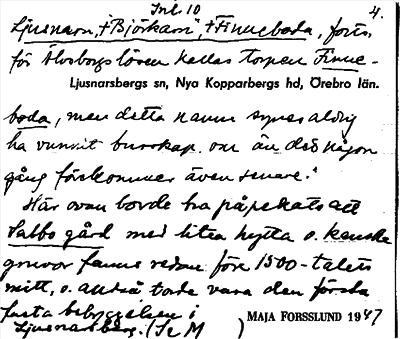 Inl. 10 4.
Ljusnarn, + Björkarn", + Finneboda, forts.
för Älvsborgs lösen kallas torpen Finne-
Ljusnarsbergs sn, Nya Kopparbergs hd, Örebro län.
boda, men detta namn synes aldrig
ha vunnit burskap, om än det någon
gång förekommer även senare."
Här ovan borde ha påpekats att
Salbo gård med liten hytta o. kanske
gruvor fanns redan före 1500-talets
mitt, o. alltså torde vara den första
fasta bebyggelsen i
Ljusnarsberg. (Se M )
MAJA FORSSLUND 1947